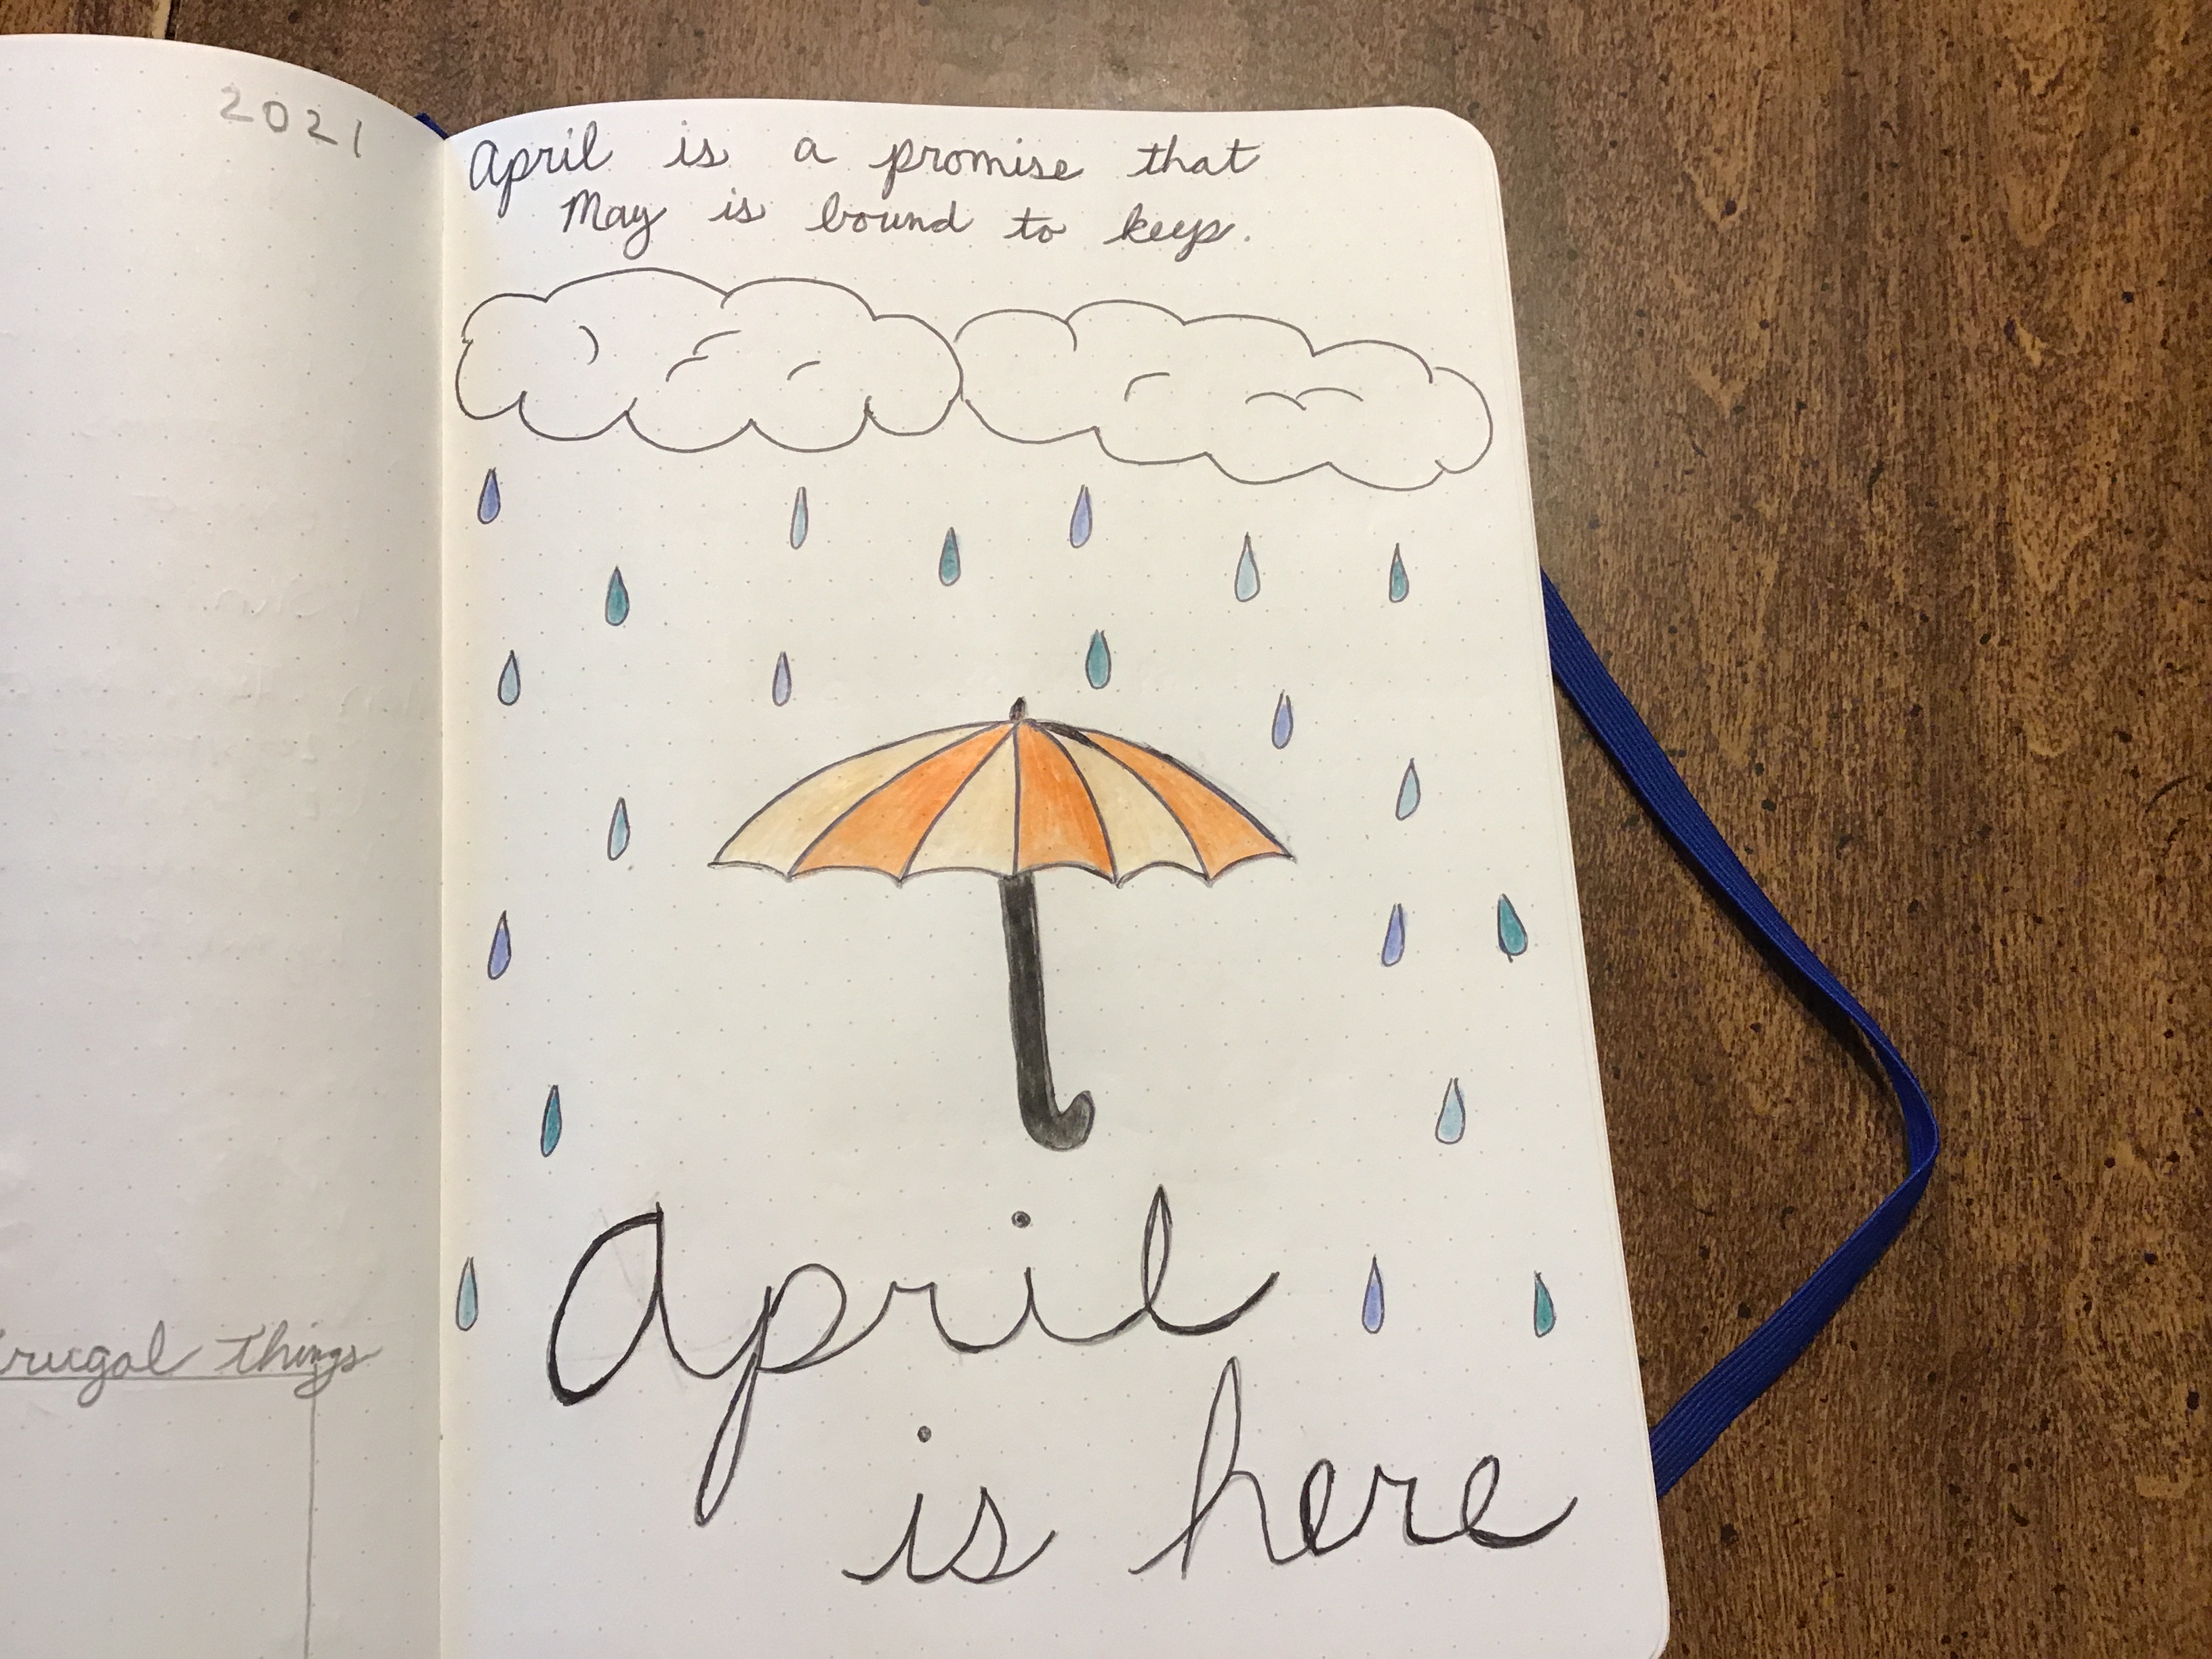 2021
rugal things
April is a promise that
May is bound to keep.
April
is here